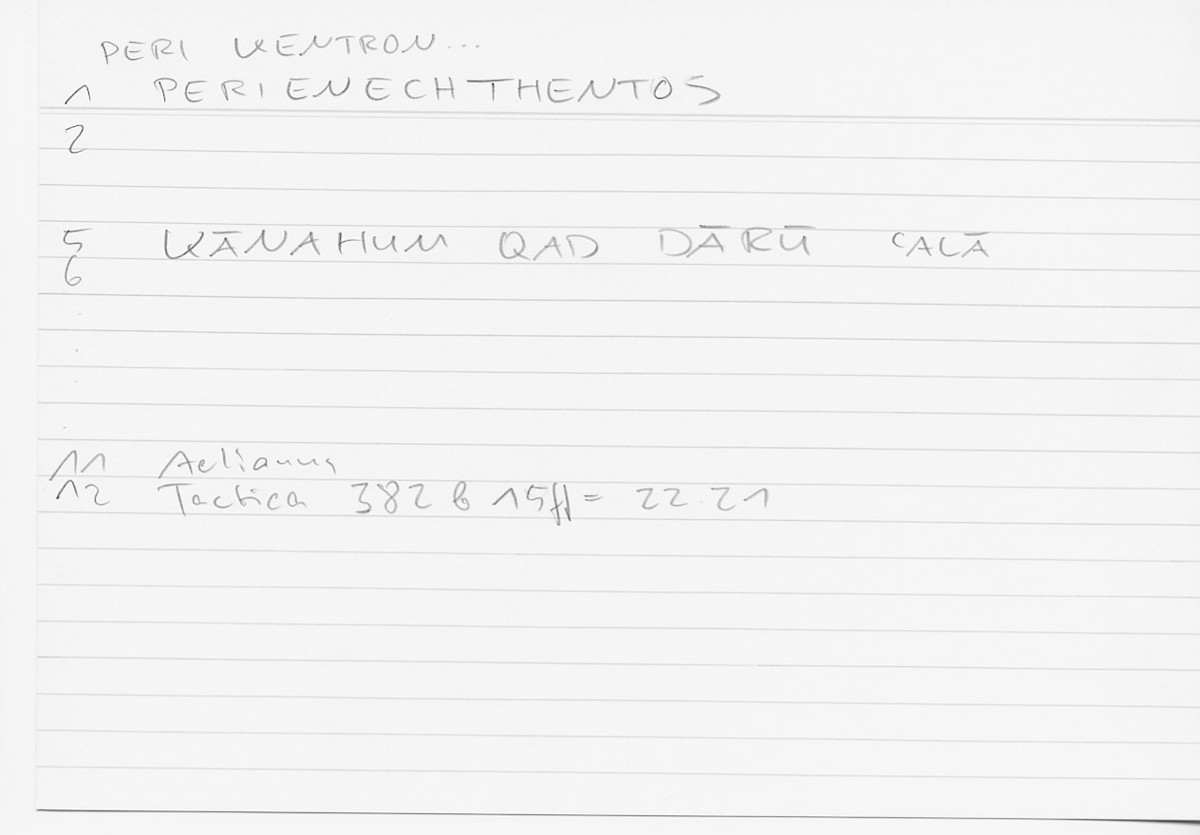 PERI KENTRON...
1 PERIENECHTHENTOS
2
5 KĀNAHUM QAD DĀRŪ ʿALĀ
6
.
.
.
11 Aelianus
12 Tactica 382 b 15ff = 22.21